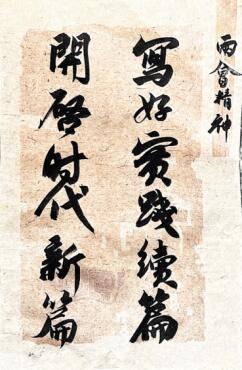 兩會精神
寫好實踐續篇
開啓时代新篇